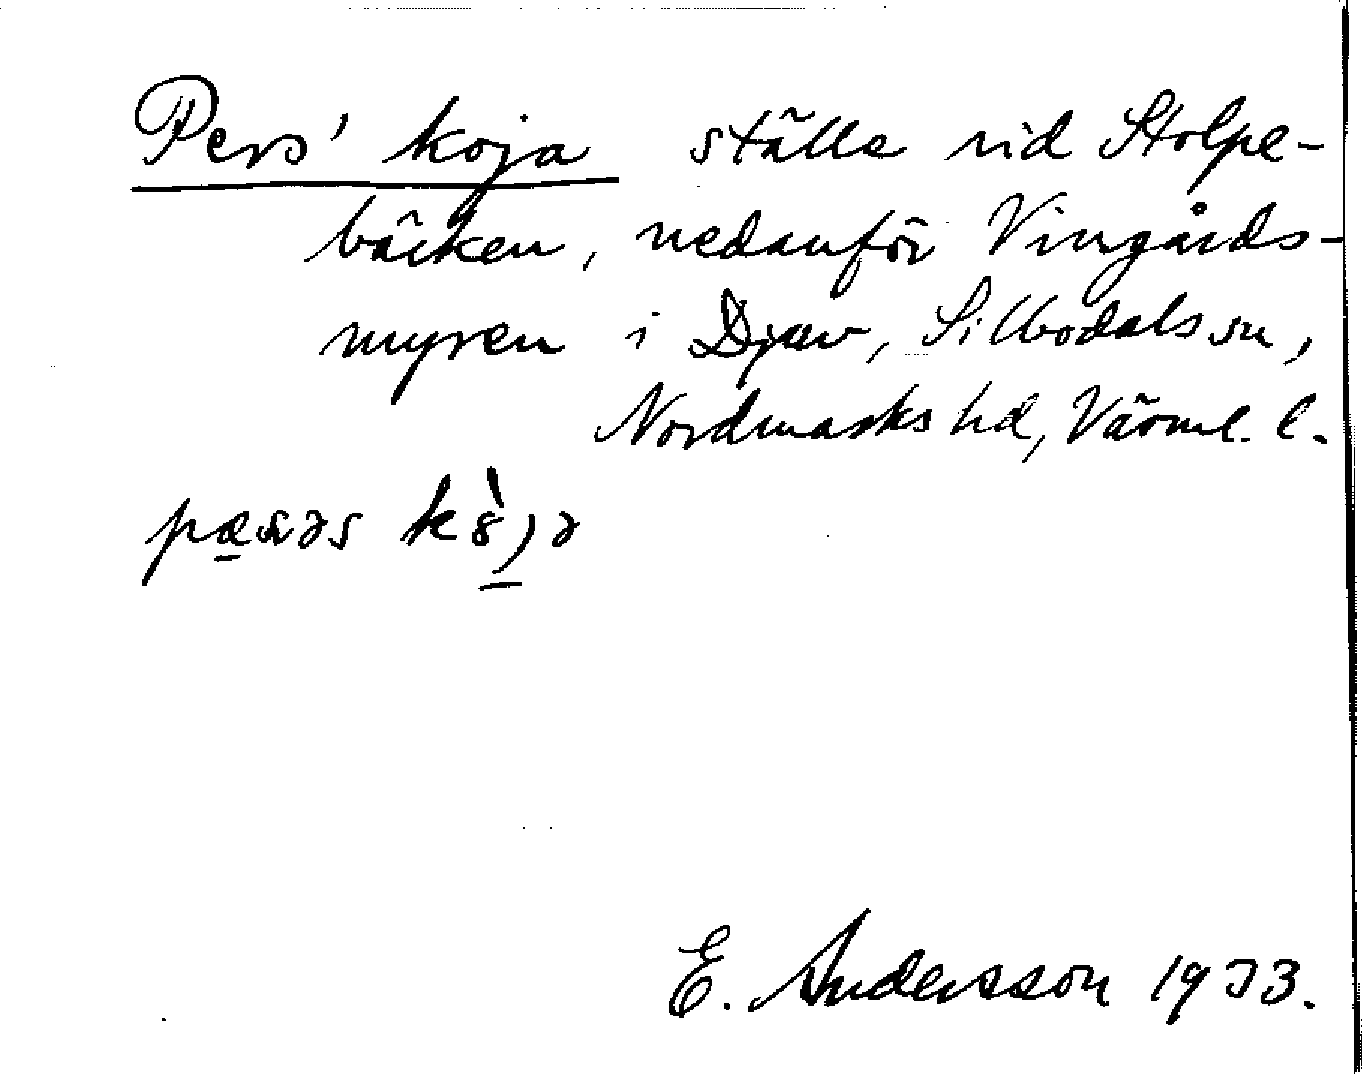 Pers' koja ställe vid Stolpe-
bäcken, nedanför Vingårds-
myren i Djäv, Silbodals sn,
Nordmarks hd, Värml. l.
E. Andersson 1933.